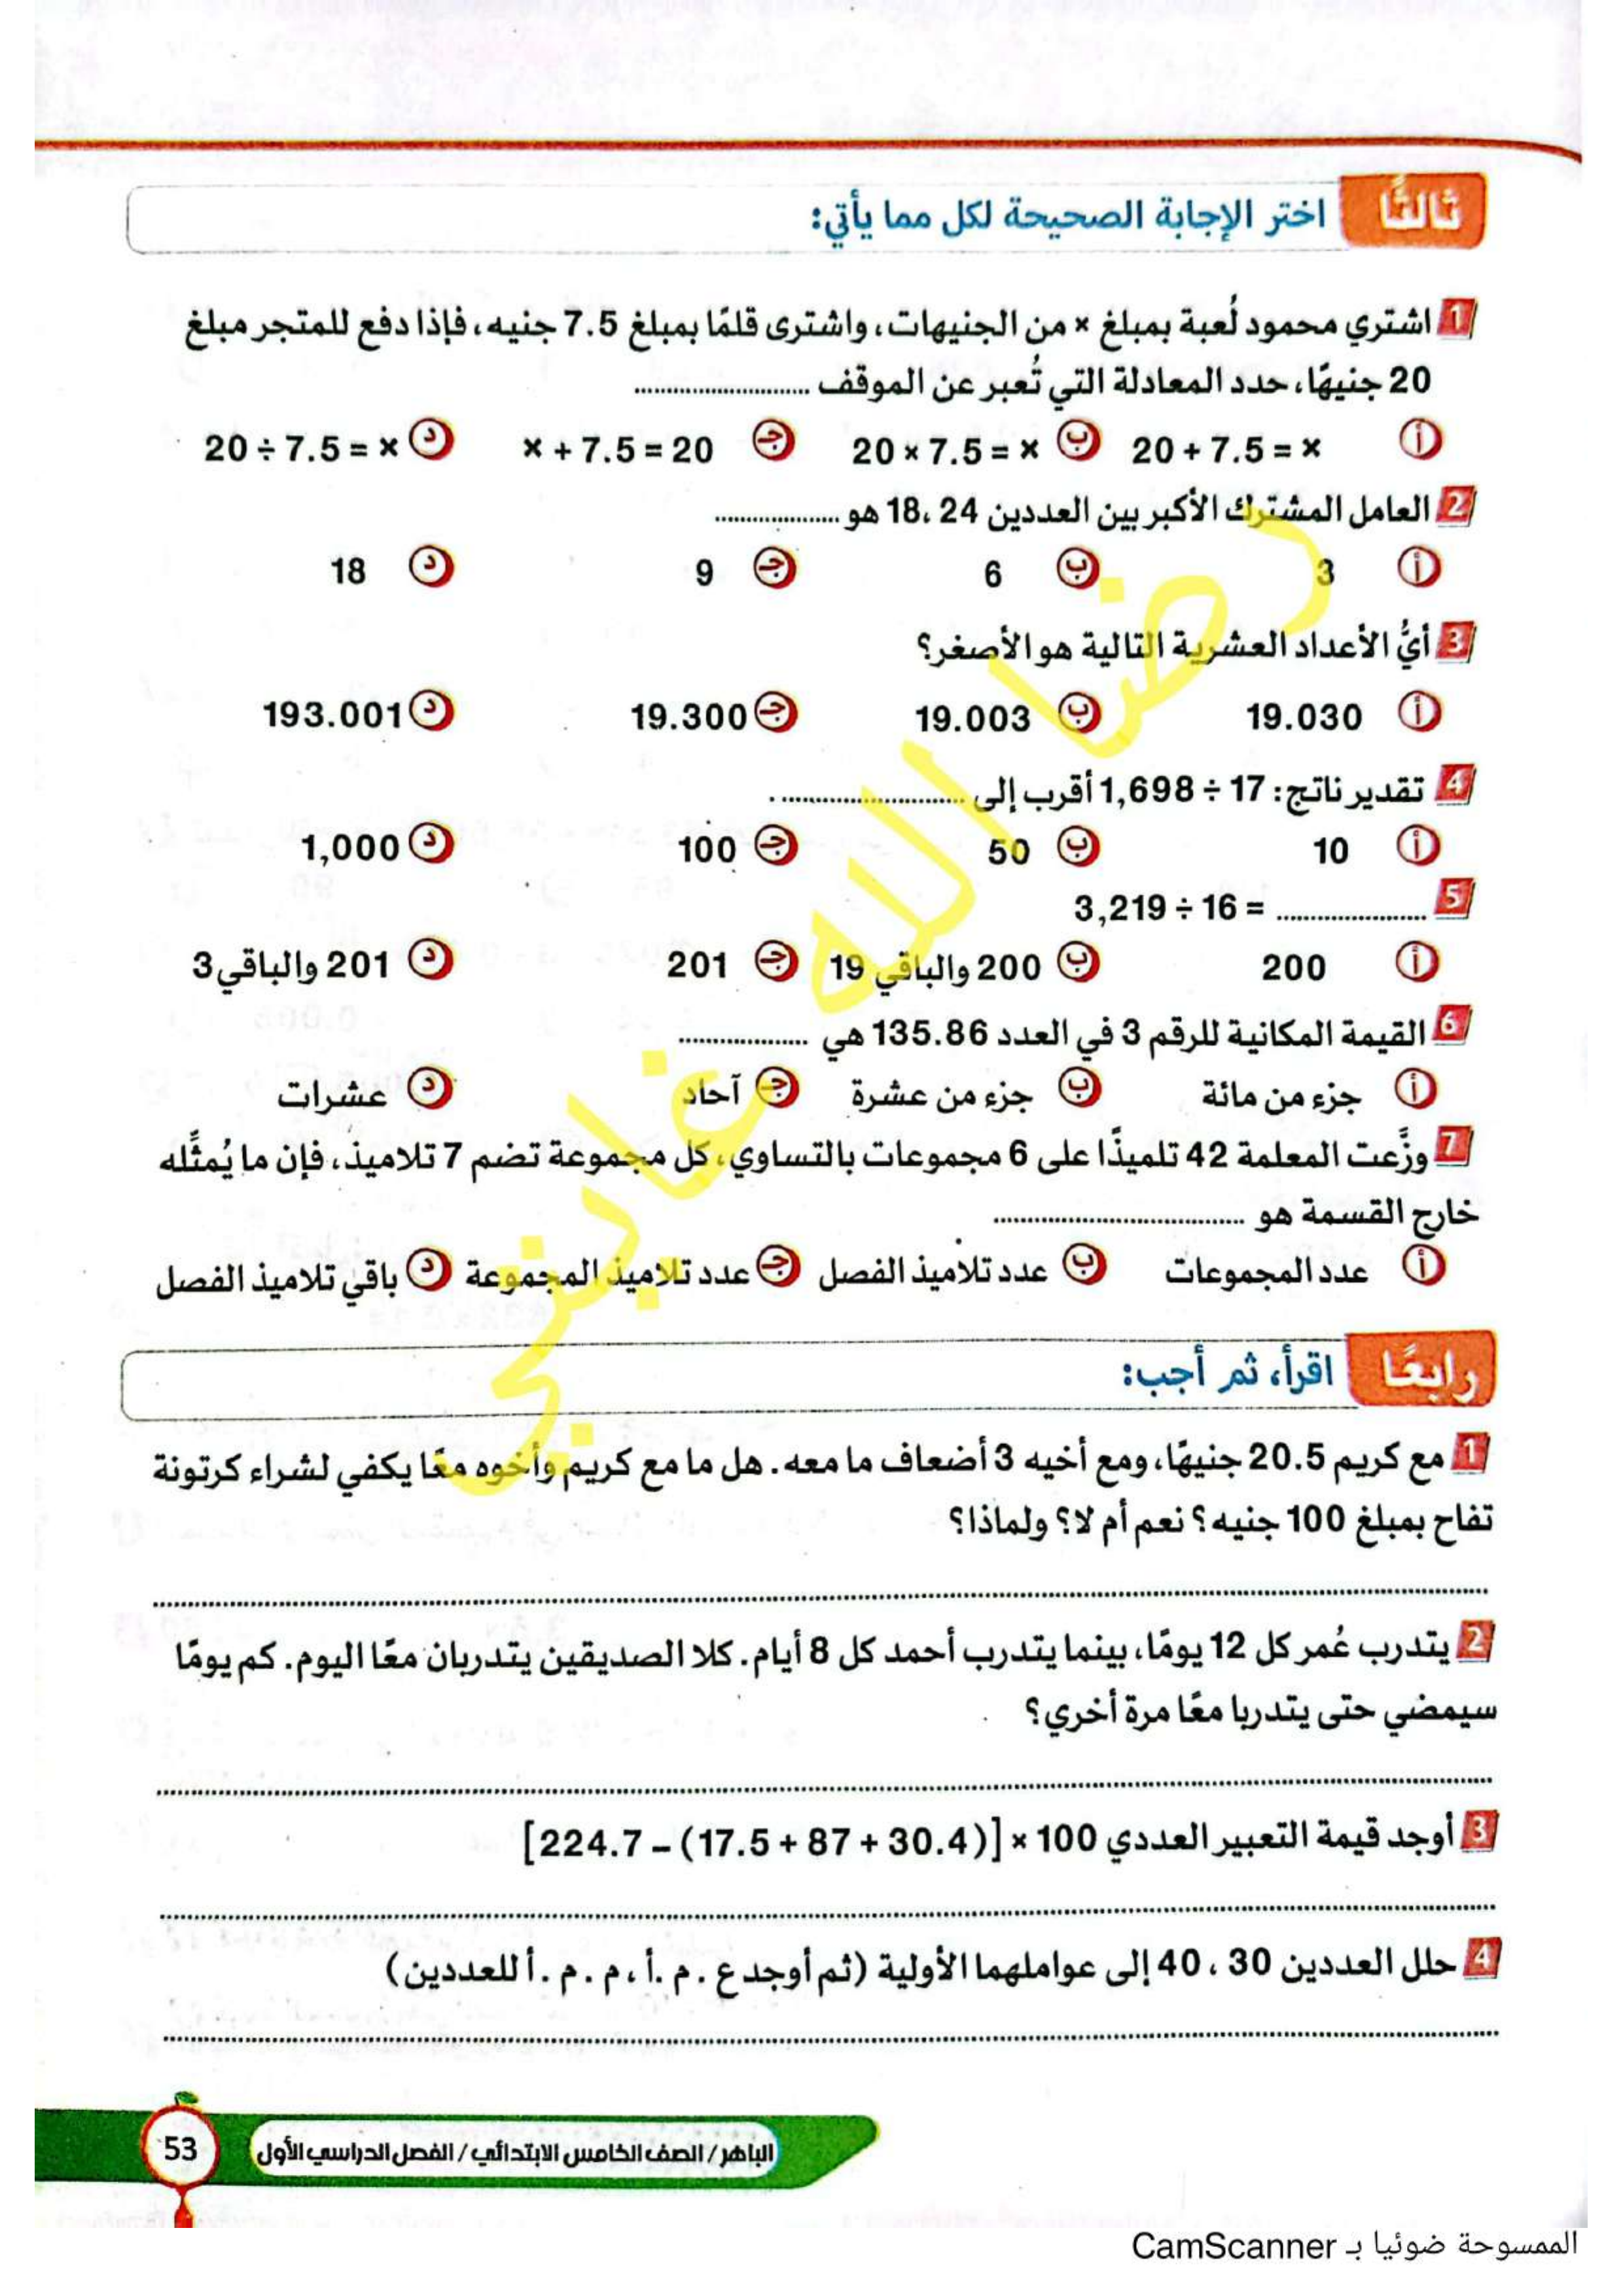 ثالثًا اختر الإجابة الصحيحة لكل مما يأتي:
1 اشتري محمود لُعبة بمبلغ x من الجنيهات، واشترى قلمًا بمبلغ 7.5 جنيه، فإذا دفع للمتجر مبلغ
20 جنيهًا، حدد المعادلة التي تُعبر عن الموقف ..........................
أ 20 + 7.5 = x ب 20 × 7.5 = x ج x + 7.5 = 20 د 20 ÷ 7.5 = x
2 العامل المشترك الأكبر بين العددين 24 ،18 هو ...................
أ 3 ب 6 ج 9 د 18
3 أيُّ الأعداد العشرية التالية هو الأصغر؟
أ 19.030 ب 19.003 ج 19.300 د 193.001
4 تقدير ناتج: 17 ÷ 1,698 أقرب إلى ............................ .
أ 10 ب 50 ج 100 د 1,000
5 3,219 ÷ 16 = ......................
أ 200 ب 200 والباقي 19 ج 201 د 201 والباقي 3
6 القيمة المكانية للرقم 3 في العدد 135.86 هي ...................
أ جزء من مائة ب جزء من عشرة ج آحاد د عشرات
7 وزَّعت المعلمة 42 تلميذًا على 6 مجموعات بالتساوي، كل مجموعة تضم 7 تلاميذ، فإن ما يُمثِّله
خارج القسمة هو .....................................
أ عدد المجموعات ب عدد تلاميذ الفصل ج عدد تلاميذ المجموعة د باقي تلاميذ الفصل
رضا الله غايتي
رابعًا اقرأ، ثم أجب:
1 مع كريم 20.5 جنيهًا، ومع أخيه 3 أضعاف ما معه. هل ما مع كريم وأخوه معًا يكفي لشراء كرتونة
تفاح بمبلغ 100 جنيه؟ نعم أم لا؟ ولماذا؟
2 يتدرب عُمر كل 12 يومًا، بينما يتدرب أحمد كل 8 أيام. كلا الصديقين يتدربان معًا اليوم. كم يومًا
سيمضي حتى يتدربا معًا مرة أخري؟
3 أوجد قيمة التعبير العددي 100 × [224.7 – (17.5 + 87 + 30.4)]
4 حلل العددين 30 ، 40 إلى عواملهما الأولية (ثم أوجد ع . م .أ ، م . م . أ للعددين)
الباهر / الصف الخامس الابتدائي / الفصل الدراسي الأول
53
الممسوحة ضوئيا بـ CamScanner